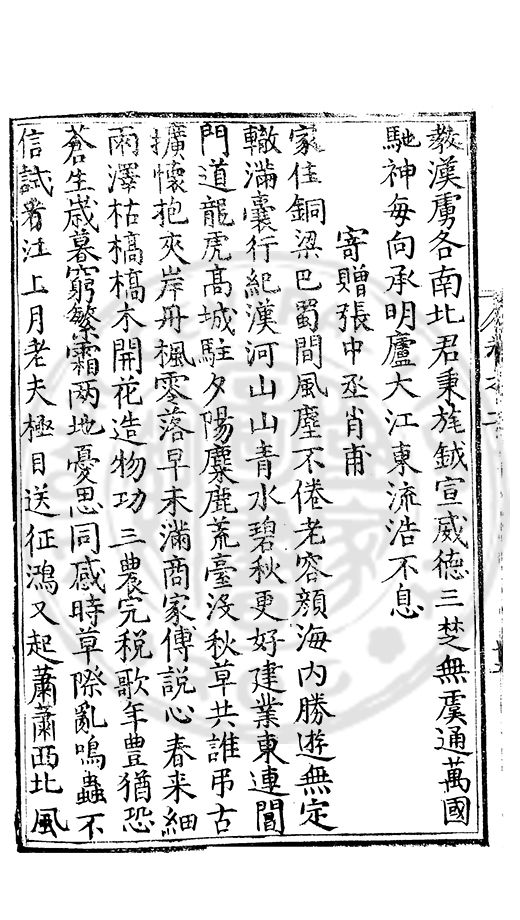 教漢虜各南北君秉旄鉞宣威德三楚無虞通萬國
馳神每向承明廬大江東流浩不息
寄贈張中丞肖甫
家住銅梁巴蜀間風塵不倦老容顏海內勝遊無定
轍滿囊行紀漢河山山青水碧秋更好建業東連閶
門道龍虎髙城駐夕陽麋鹿荒臺没秋草共誰弔古
擴懷抱夾岸丹楓零落早未滿商家傅說心春来細
雨澤枯槁槁木開花造物功三農完稅歌年豊猶恐
蒼生歲暮窮繁霜两地憂思同感時草際亂鳴蟲不
信試看江上月老夫極目送征鴻又起蕭蕭西北風